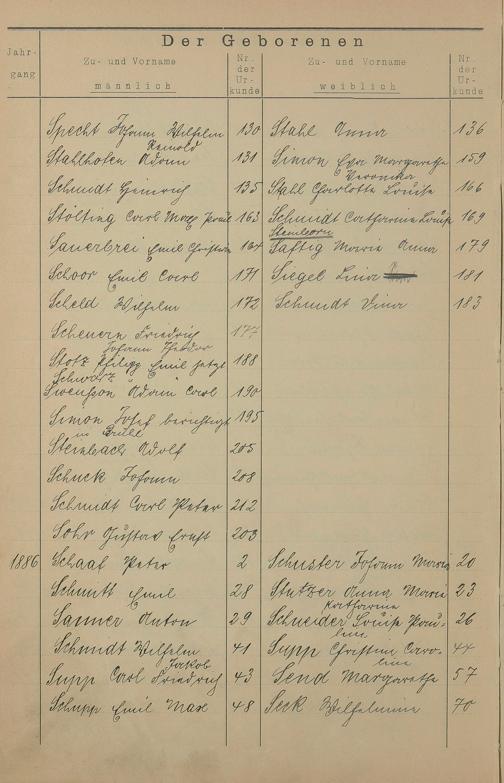 Der Geborenen
Jahr-
gang
Zu- und Vorname
männlich
Nr.
der
Ur-
kunde
Zu- und Vorname
weiblich
Nr.
der
Ur-
kunde
Specht Johann Wilhelm 130 Stahl Anna 136
Reinold
Stahlhofen Adam 131 Simon Eva Margaretha 159
Veronika
Schmidt Heinrich 135 Stahl Charlotte Louise 166
Stölting Carl Max Paul 163 Schmidt Catharina Louise 169
Steinborn
Sauerbrei Emil Christian 164 Saftig Maria Anna 179
Schoor Emil Carl 171 Siegel Lina 181
Scheld Wilhelm 172 Schmidt Lina 183
Scheuern Friedrich 177
Johann Theodor
Stotz Philipp Emil jetzt 188
Schwarz
Swenson Adam Carl 190
Simon Josef berichtigt 195
in
Steinbach Adolf 205
Schuck Johann 208
Schmidt Carl Peter 212
Sohr Gustav Ernst 203
1886 Schaal Peter 2 Schuster Johann Maria 20
Schmitt Emil 28 Stutzer Anna Maria 23
Katharina
Sanner Anton 29 Schneider Louise Pau- 26
line
Schmidt Wilhelm 41 Supp Christine Caro- 44
Jakob line
Supp Carl Friedrich 43 Send Margaretha 57
Schupp Emil Max 48 Seck Wilhelmine 70